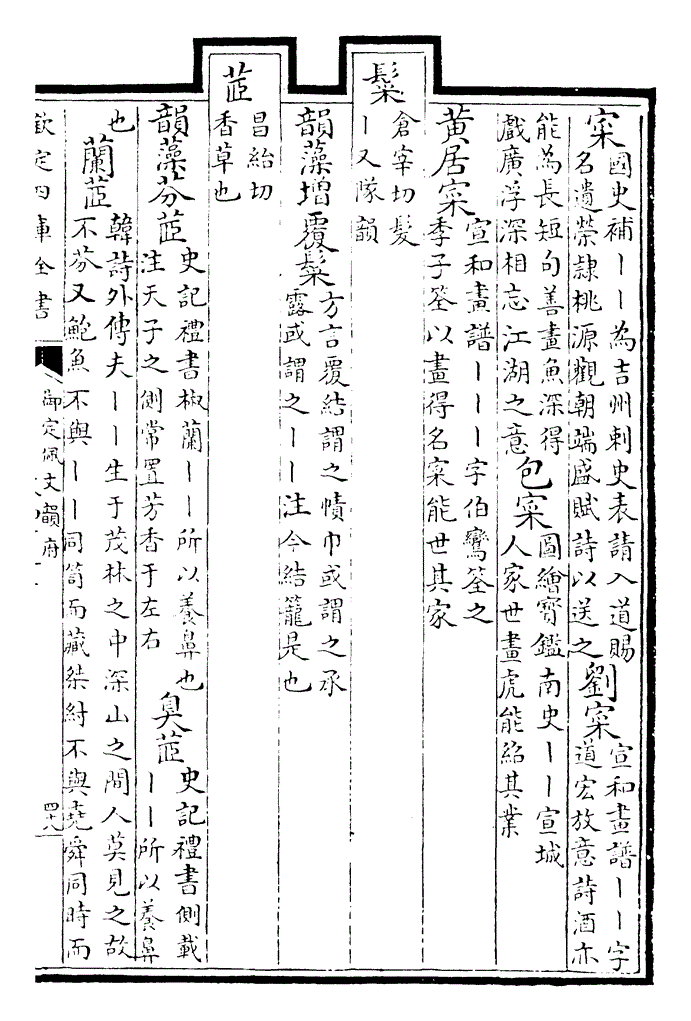 寀國史補丨丨為吉州刺史表請入道賜
名遺榮隷桃源觀朝端盛賦詩以送之
劉寀宣和畫譜丨丨字
道宏放意詩酒亦
能為長短句善畫魚深得
戲廣浮深相忘江湖之意
包寀圖繪寶鑑南史丨丨宣城
人家世畫虎能紹其業
黃居寀宣和畫譜丨丨丨字伯鸞筌之
季子筌以畫得名寀能世其家
䰂倉宰切髮
丨又隊韻
韻藻增覆䰂方言覆結謂之幘巾或謂之承
露或謂之丨丨注今結籠是也
茝昌紿切
香草也
韻藻芬茝史記禮書椒蘭丨丨所以養鼻也
注天子之側常置芳香于左右
臭茝史記禮書側載
丨丨所以養鼻
也
蘭茝韓詩外傳夫丨丨生于茂林之中深山之間人莫見之故
不芬又鮑魚不與丨丨同笥而藏桀紂不與堯舜同時而
欽定四庫全書
御定佩文韻府
四十八